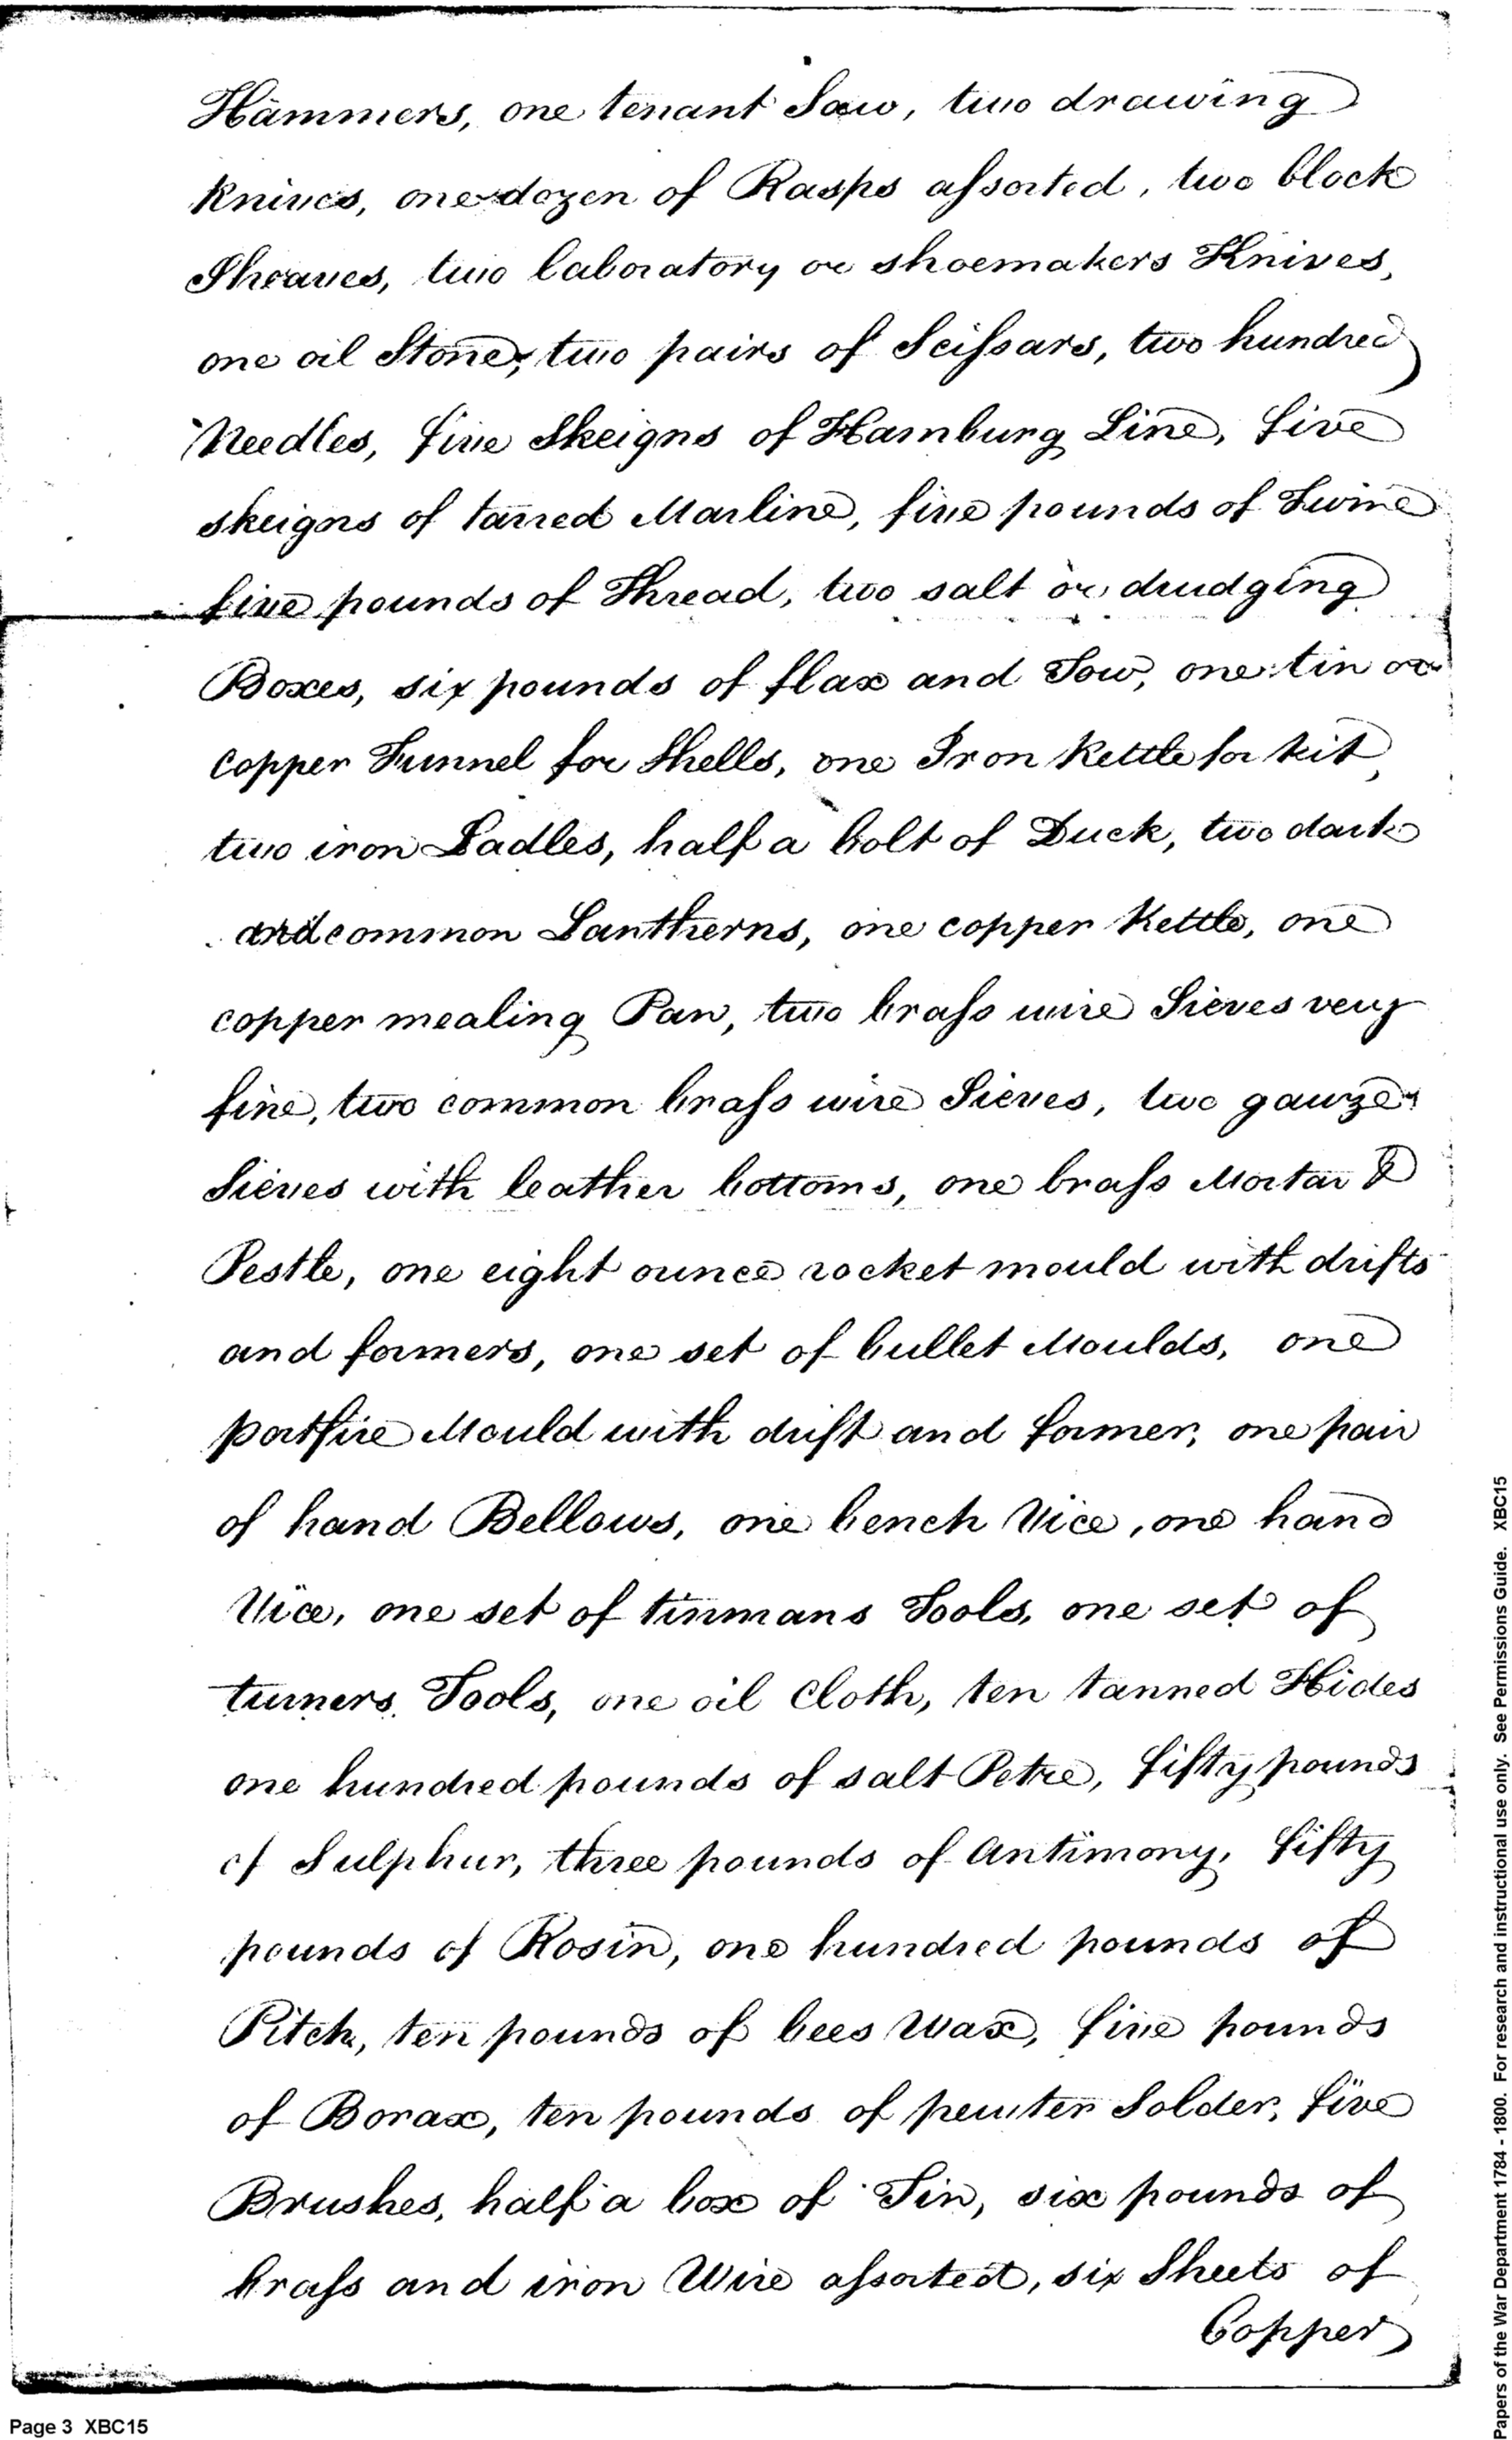 Hammers, one tenant Saw, two drawing
Knives, one dozen of Rasps assorted, two block
Sheaves, two laboratory or shoemakers Knives,
one oil Stone, two pairs of Scissars, two hundred
Needles, five Skeigns of Hamburg Line, five
skeigns of tarred Marline, five pounds of Twine
five pounds of Thread, two salt or drudging
Boxes, six pounds of flax and Tow, one tin or
copper Funnel for Shells, one Iron Kettle for kit,
two iron Ladles, half a bolt of Duck, two dark
and common Lantherns, one copper Kettle, one
copper mealing Pan, two brass wire Sieves very
fine, two common brass wire Sieves, two gauze
Sieves with leather bottoms, one brass Mortar &
Pestle, one eight ounce rocket mould with drifts
and formers, one set of bullet Moulds, one
portfire Mould with drift and former, one pair
of hand Bellows, one bench Vice, one hand
Vice, one set of tinmans Tools, one set of
turners Tools, one oil Cloth, ten tanned Hides
one hundred pounds of salt Petre, fifty pounds
of Sulphur, three pounds of Antimony, fifty
pounds of Rosin, one hundred pounds of
Pitch, ten pounds of bees Wax, five pounds
of Borax, ten pounds of pewter Solder, five
Brushes, half a box of Tin, six pounds of
brass and iron Wire assorted, six Sheets of
Copper
Page 3 XBC15
Papers of the War Department 1784 - 1800. For research and instructional use only. See Permissions Guide. XBC15